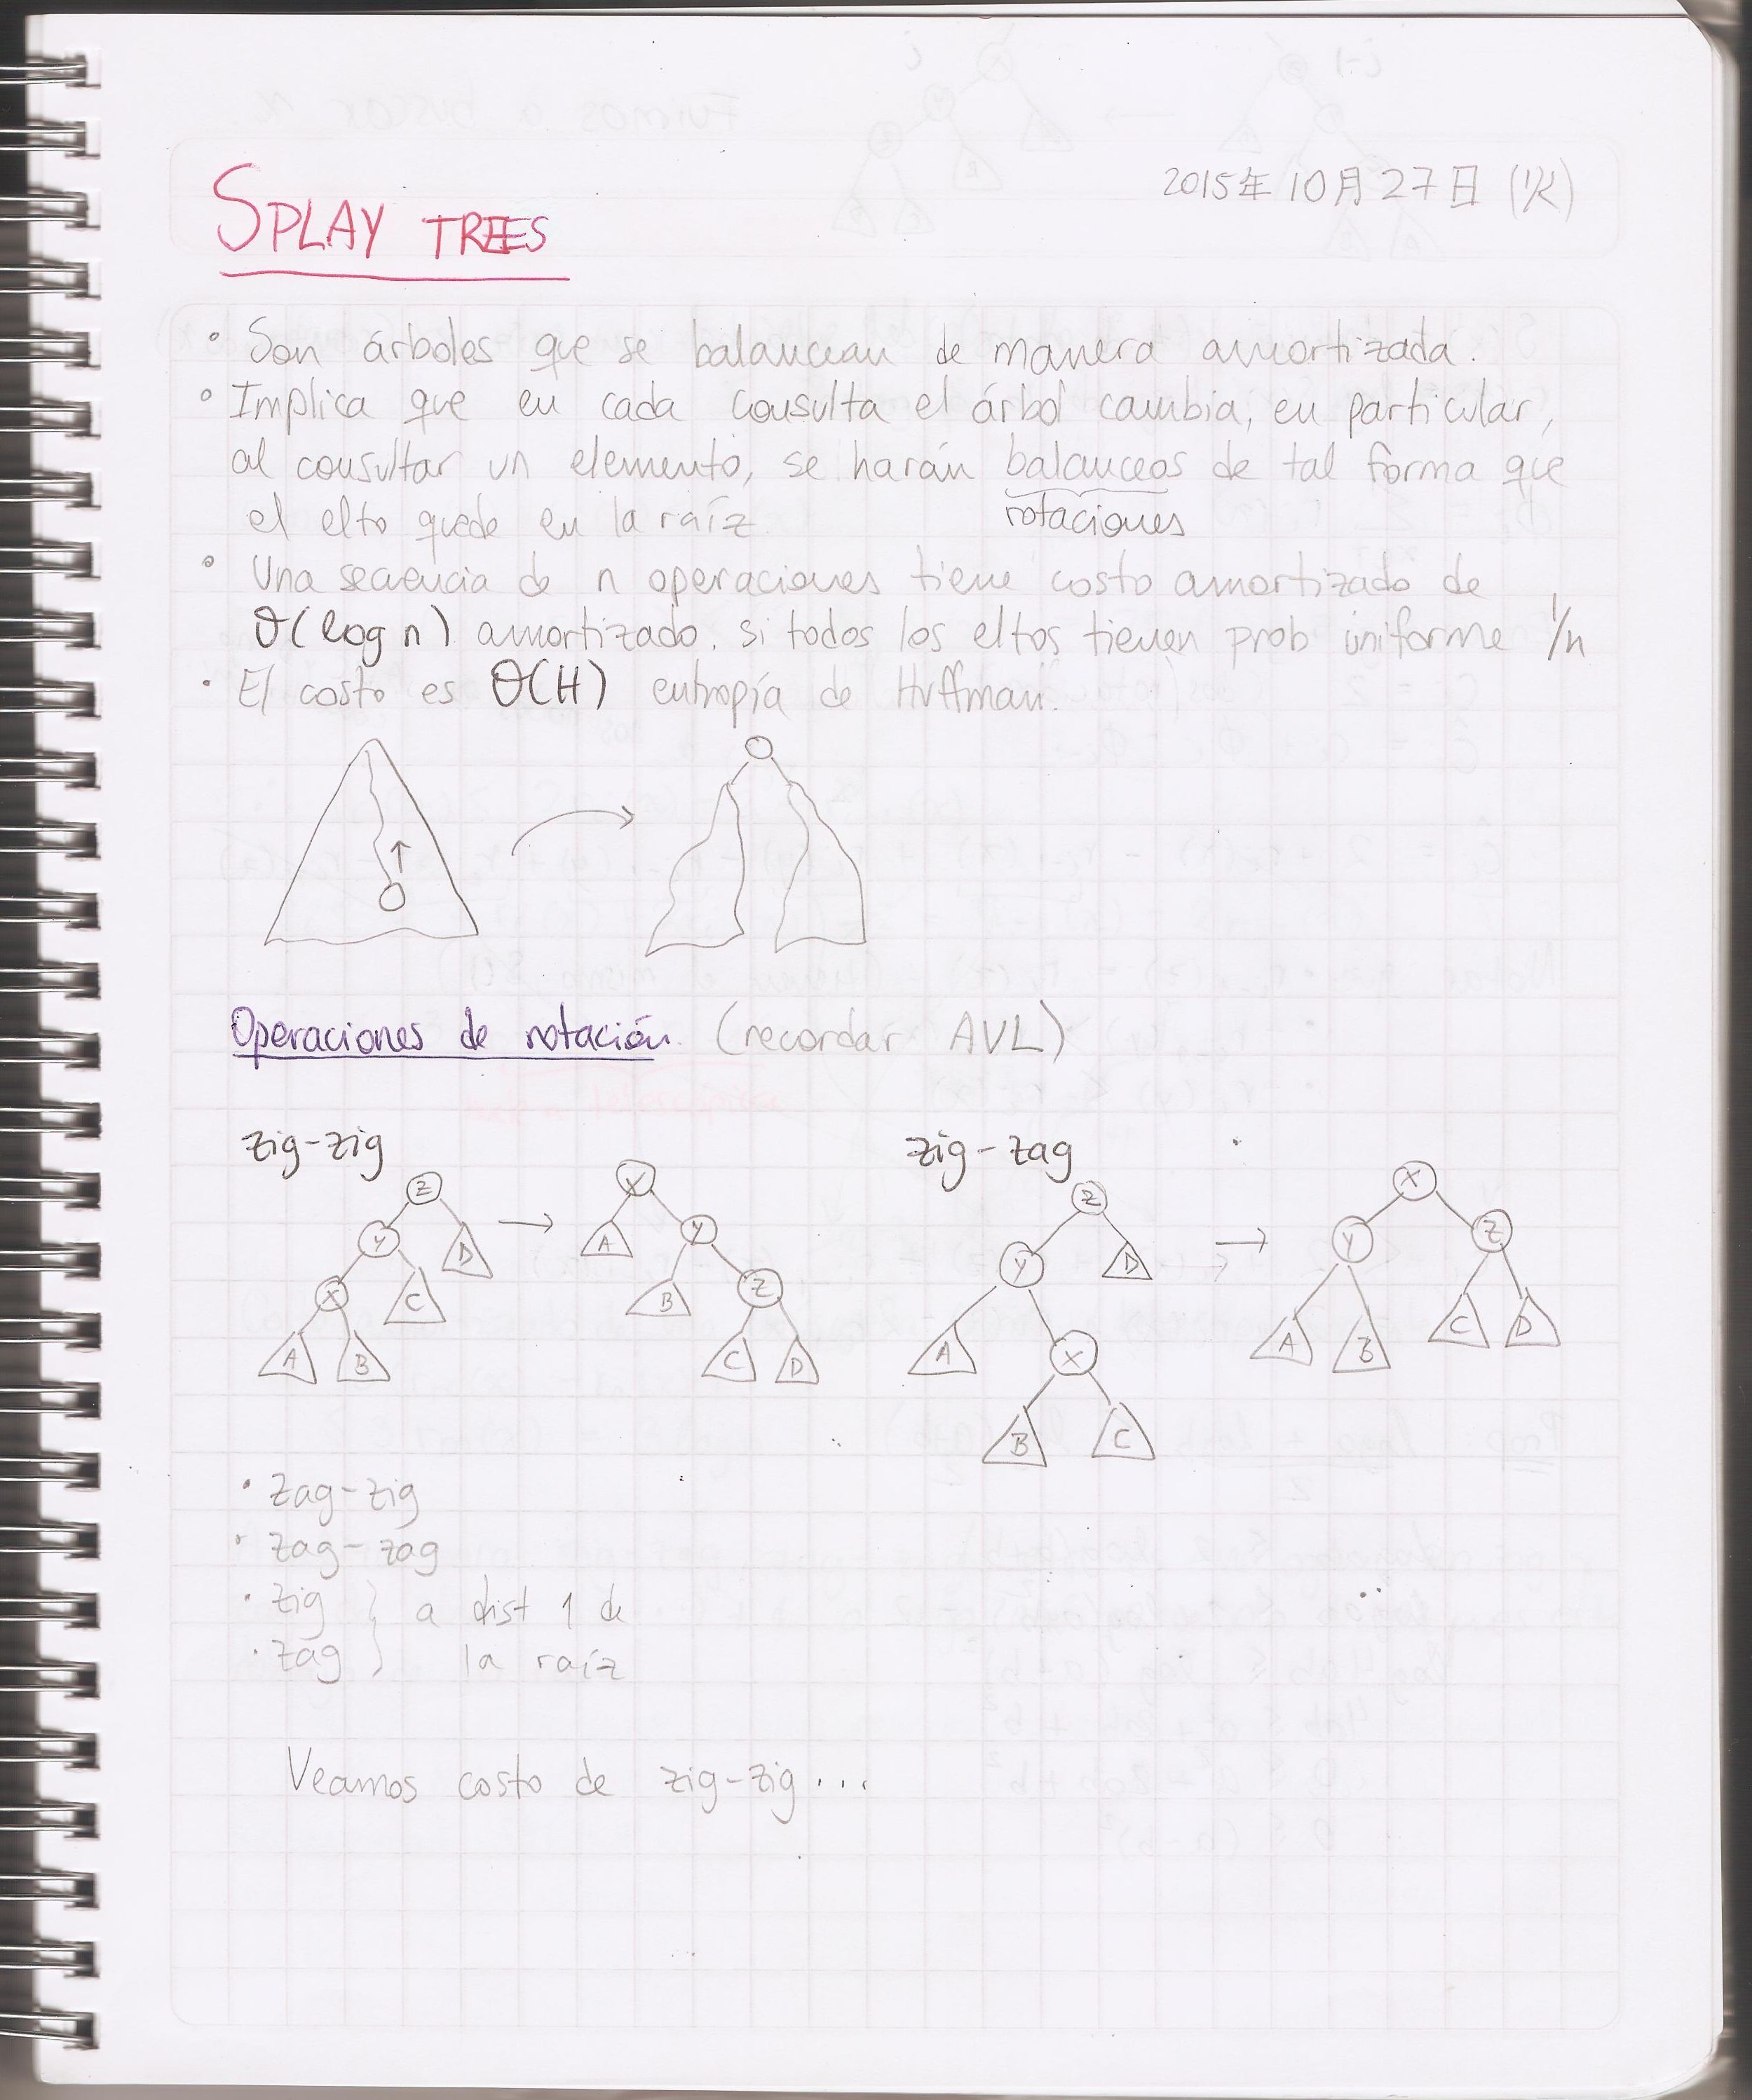 2015年10月27日(火)
SPLAY TREES
• Son árboles que se balancean de manera amortizada.
• Implica que en cada consulta el árbol cambia, en particular,
al consultar un elemento, se harán balanceos de tal forma que
rotaciones
el elto quede en la raíz
• Una secuencia de n operaciones tiene costo amortizado de
O(log n) amortizado. si todos los eltos tienen prob uniforme 1/n
• El costo es O(H) entropía de Huffman.
Operaciones de rotación (recordar AVL)
zig-zig
Z
Y
D
X
C
A B
X
A
Y
B
Z
C D
zig-zag
Z
Y
D
A
X
B C
X
Y Z
A B C D
• zag-zig
• zag-zag
• zig } a dist 1 de
• zag } la raíz
Veamos costo de zig-zig...